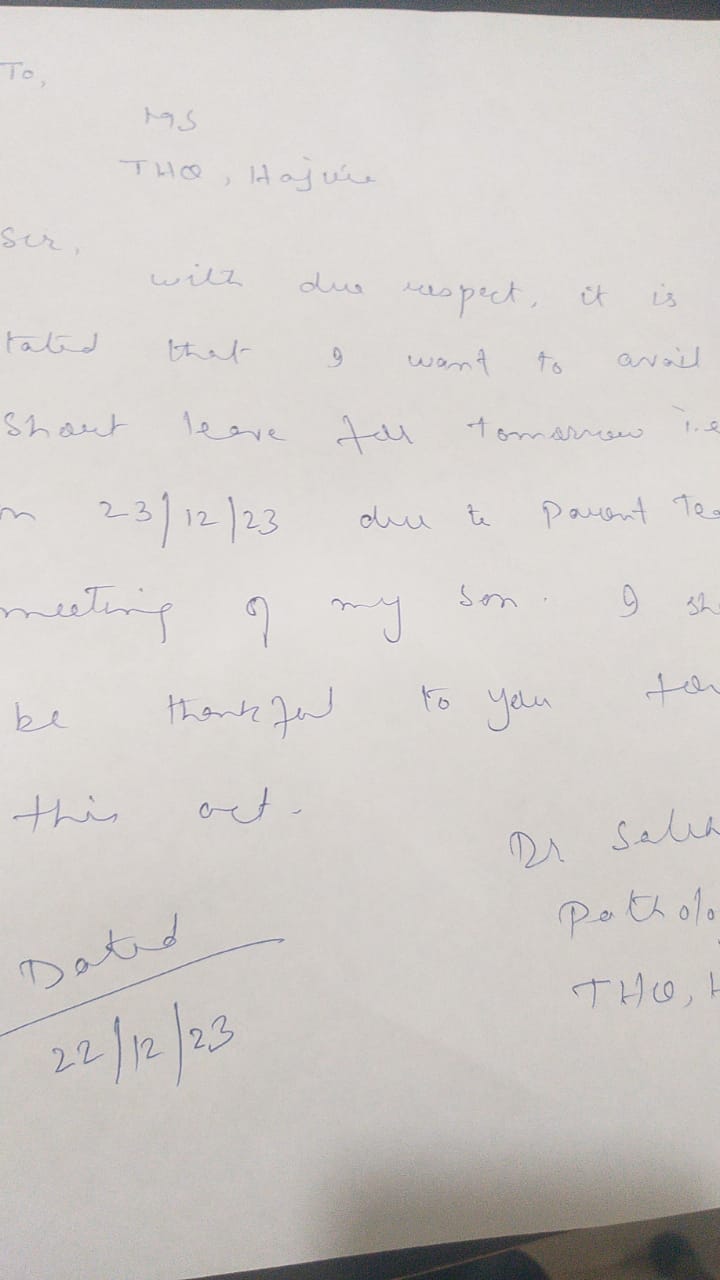 To,
MS
THQ, Hajvie
Sir,
with due respect, it is
tated that I want to avail
Short leave for tomorrow i.e
on 23/12/23 due to Parent Tea
meeting of my son. I sh
be thankful to you for
this act.
Dr Saleh
Patholo
THQ, H
Dated
22/12/23